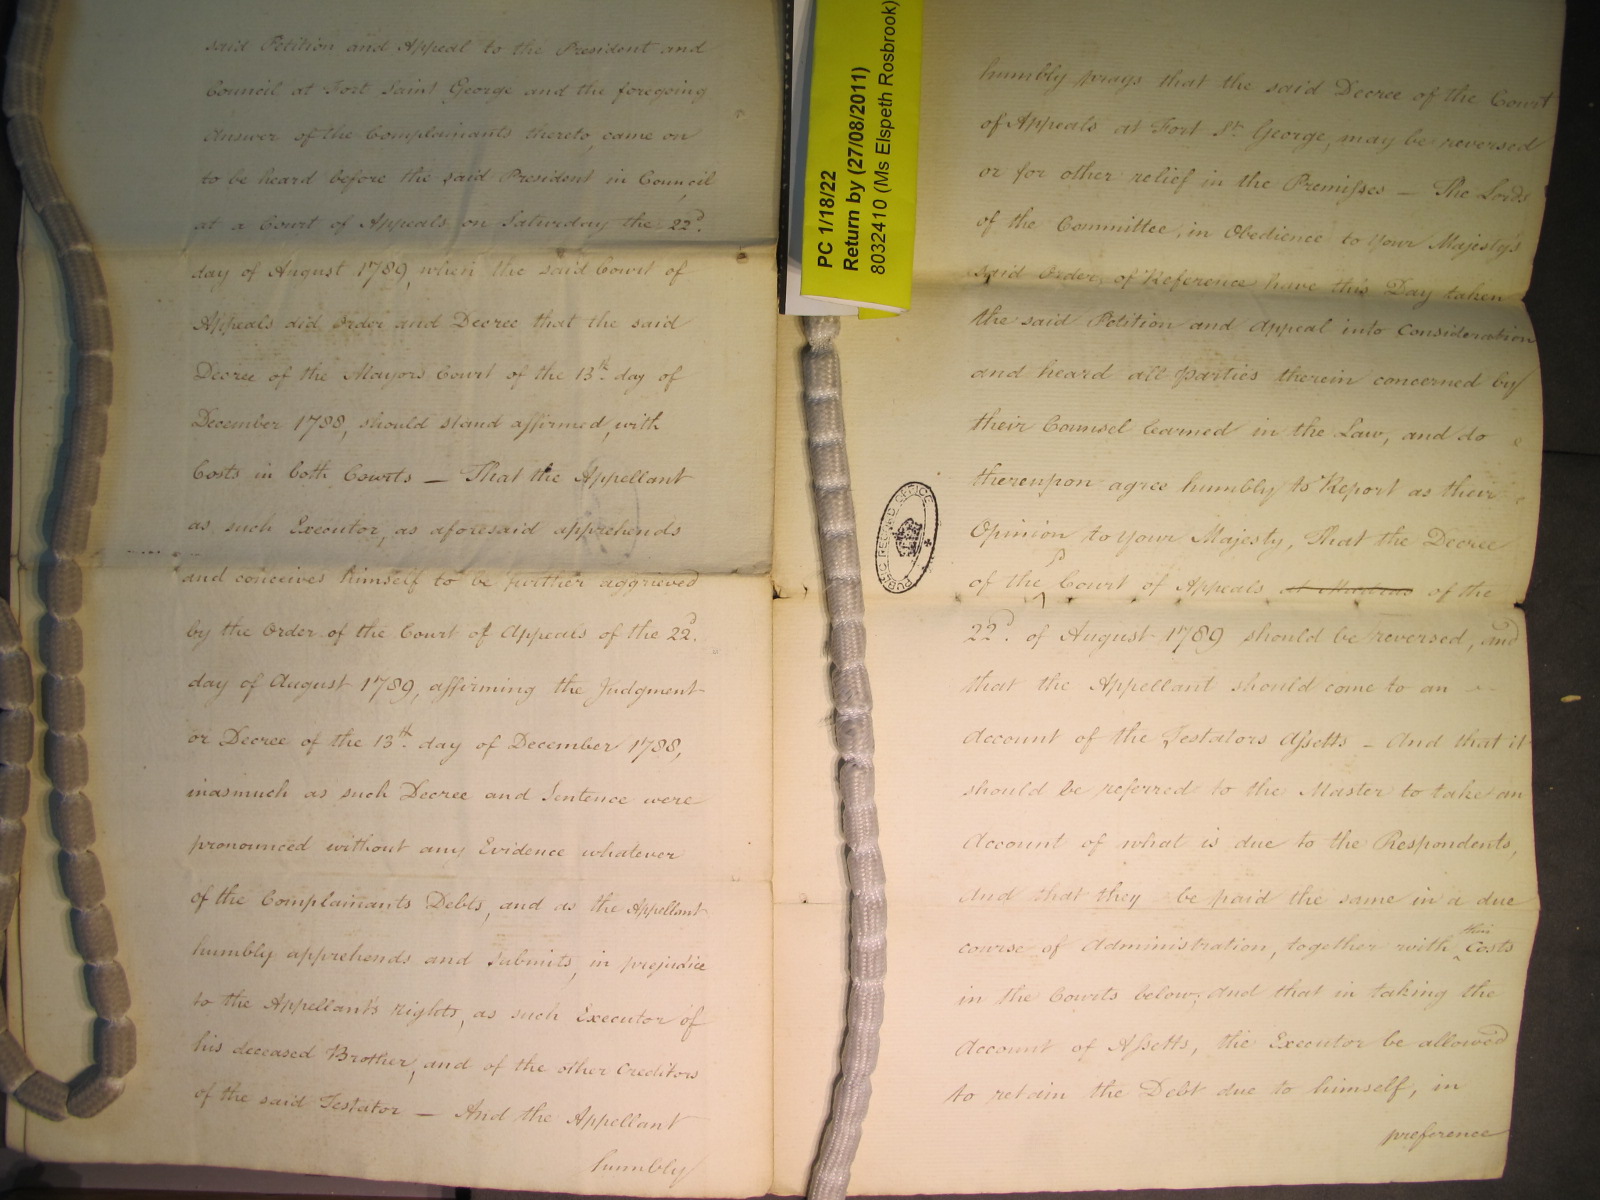 said Petition and Appeal to the President and
Council at Fort Saint George and the foregoing
Answer of the Complainants thereto, came on
to be heard before the said President in Council
at a Court of Appeals on Saturday the 22d.
day of August 1789, when the said Court of
Appeals did Order and Decree that the said
Decree of the Mayors Court of the 13th. day of
December 1788, should stand affirmed, with
Costs in both Courts — That the Appellant
as such Executor, as aforesaid apprehends
and conceives himself to be further aggrieved
by the Order of the Court of Appeals of the 22d.
day of August 1789, affirming the Judgment
or Decree of the 13th. day of December 1788,
inasmuch as such Decree and Sentence were
pronounced without any Evidence whatever
of the Complainants Debts, and as the Appellant
humbly apprehends and submits, in prejudice
to the Appellant's rights, as such Executor of
his deceased Brother, and of the other Creditors
of the said Testator — And the Appellant
humbly
PC 1/18/22
Return by (27/08/2011)
8032410 (Ms Elspeth Rosbrook)
PUBLIC RECORD OFFICE
humbly prays that the said Decree of the Court
of Appeals at Fort St. George, may be reversed
or for other relief in the Premisses — The Lords
of the Committee, in Obedience to your Majesty's
said Order of Reference have this Day taken
the said Petition and Appeal into Consideration
and heard all Parties therein concerned by
their Counsel learned in the Law, and do
thereupon agree humbly to Report as their
Opinion to your Majesty, That the Decree
of the Court of Appeals at Madras of the
22d. of August 1789 should be reversed, and
that the Appellant should come to an
Account of the Testators Assetts — And that it
should be referred to the Master to take an
Account of what is due to the Respondents,
And that they be paid the same in a due
course of Administration, together with their Costs
in the Courts below; And that in taking the
Account of Assetts, the Executor be allowed
to retain the Debt due to himself, in
preference